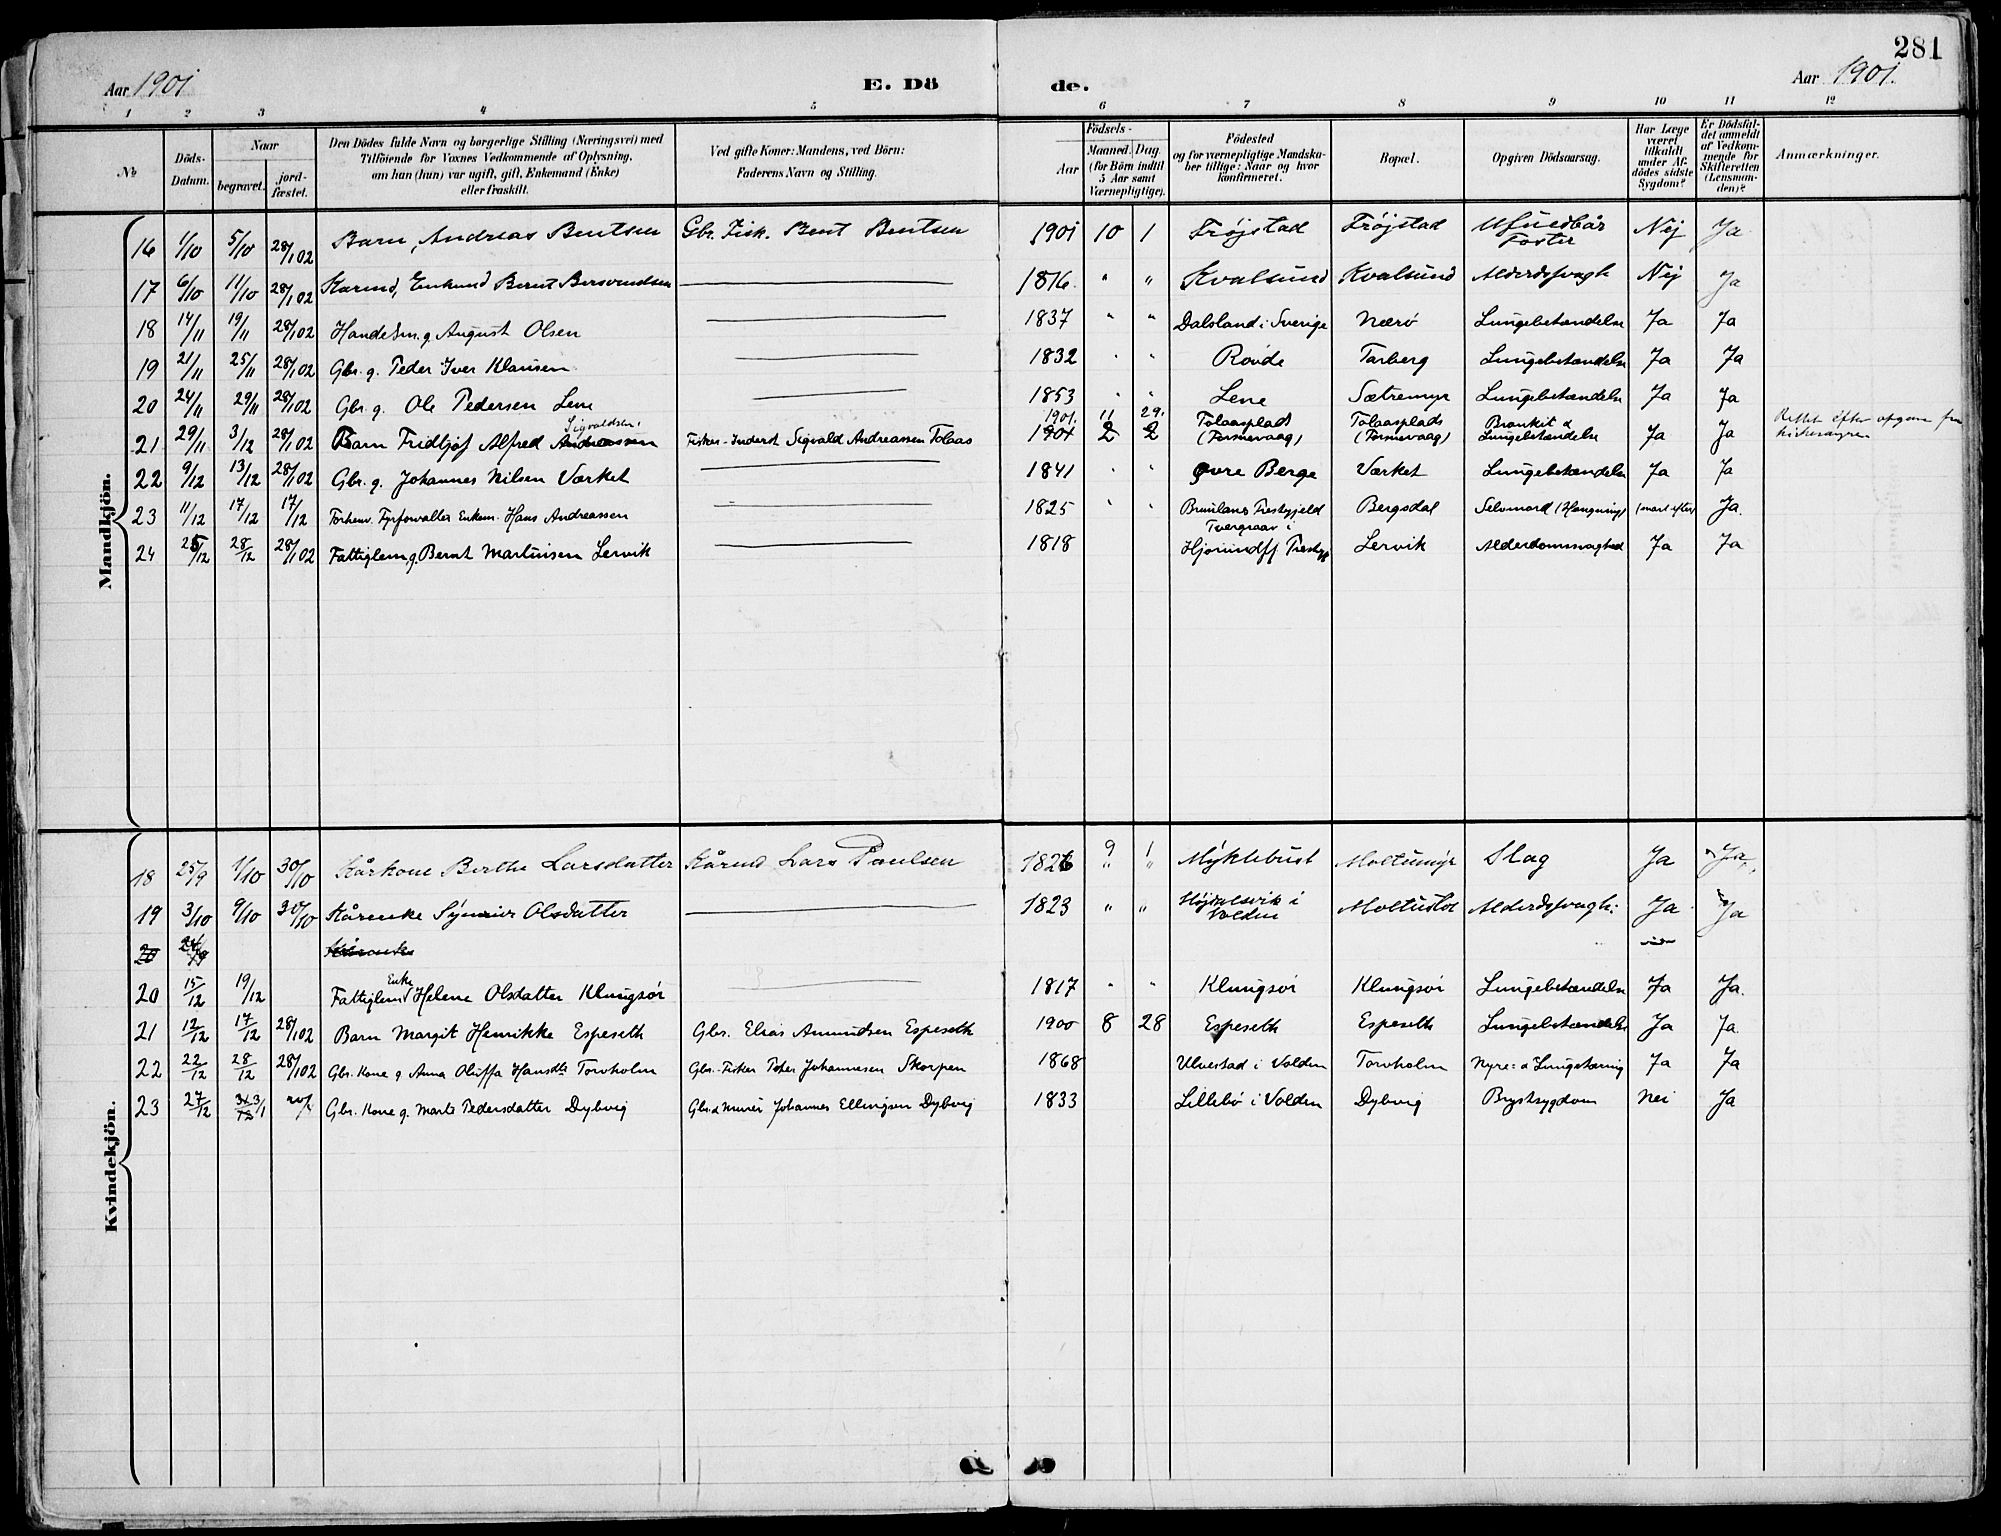 281
Aar 1901 E. Dö de. Aar 1901.
1 2 3 4 5 6 7 8 9 10 11 12
№ Döds-Datum. Naar begravet. jord-fæstet. Den Dödes fulde Navn og borgerlige Stilling (Næringsvei) med Tilföiende for Voxnes Vedkommende af Oplysning, om han (hun) var ugift, gift, Enkemand (Enke) eller fraskilt. Ved gifte Koner: Mandens, ved Börn: Faderens Navn og Stilling. Födsels- Aar Maaned. Dag (for Börn indtil 5 Aar samt Værnepligtige). Födested og for værnepligtige Mandskaber tillige: Naar og hvor konfirmeret. Bopæl. Opgiven Dödsaarsag. Har Læge været tilkaldt under Afdödes sidste Sygdom? Er Dödsfaldet anmeldt af Vedkommende for Skifteretten (Lensmanden)? Anmærkninger.
Mandkjön.
16 1/10 5/10 28/1 02 Barn, Andreas Bentsen Gbr. Fisk. Bent Bentsen 1901 10 1 Frøjstad Frøjstad Ufuldbår Foster Nej Ja
17 6/10 11/10 28/1 02 Karmd, Enkemd Bernt Bersvendsen 1816. " " Kvalsund Kvalsund Alderdssvagh Nej Ja
18 14/11 19/11 28/1 02 Handelsm. g. August Olsen 1837 " " Dalsland i Sverige Nærø Lungebetændelse Ja Ja
19 21/11 25/11 28/1 02 Gbr. g. Peder Iver Klausen 1832 " " Rovde Tarberg Lungebetændelse Ja Ja
20 24/11 29/11 28/1 02 Gbr. g. Ole Pedersen Lene 1853 " " Lene Sætremyr Lungebetændelse Ja Ja
21 29/11 3/12 28/1 02 Barn Fridtjof Alfred Andreassen Sigvaldsen Fisker-Inderst Sigvald Andreassen Tolaas 1901. 1901 11 2 29. 2 Tolaasplads (Tormevaag) Tolaasplads (Tormevaag) Bronkit & Lungebetændelse Ja Ja Rettet efter opgave fra
22 9/12 13/12 28/1 02 Gbr. g. Johannes Nilsen Værket 1841 " " Øvre Berge Værket Lungebetændelse Ja Ja
23 11/12 17/12 17/12 Forhenv. Fyrforvalter Enkem. Hans Andreassen 1825 " " Brunlanes Prestegjeld Bergsdal Selvmord (Hængning) (snart efter) Ja.
24 25/12 28/12 28/1 02 Fattiglem, g. Bernt Martinisen Lervik 1818 Tvergraav i Hjørundfj Prestgj Lervik Alderdomsvaghed Ja Ja
Kvindekjön.
18 25/9 1/10 30/10 Kårkone Berthe Larsdatter Kårmd Lars Paulsen 1826 9 1 Myklebust Moltumyr Slag Ja Ja
19 3/10 9/10 30/10 Kårenke Synnøve Olsdatter 1823 " " Højdalsvik i Volden Moltustol Alderdssvagh: Ja Ja
20 24/9 Kårenke
20 15/12 19/12 Fattiglem Enke Helene Olsdatter Klungsør 1817 " " Klungsør Klungsør Lungebetændelse Ja Ja.
21 12/12 17/12 28/1 02 Barn Margit Henrikke Espeseth Gbr. Elias Amundsen Espeseth 1900 8 28 Espeseth Espeseth Lungebetændelse Ja Ja
22 22/12 28/12 28/1 02 Gbr. Kone g. Anna Oluffa Hansdtr Torvholm Gbr.-Fisker Peter Johannesen Skorpen 1868 Ulvestad i Volden Torvholm Nyre- & Lungetæring Ja Ja
23 27/12 3/1 Gbr. Kone g. Marte Pedersdatter Dybvig Gbr. & Murer Johannes Ellingsen Dybvig 1833 Lillebø i Volden Dybvig Brystsygdom Nei Ja